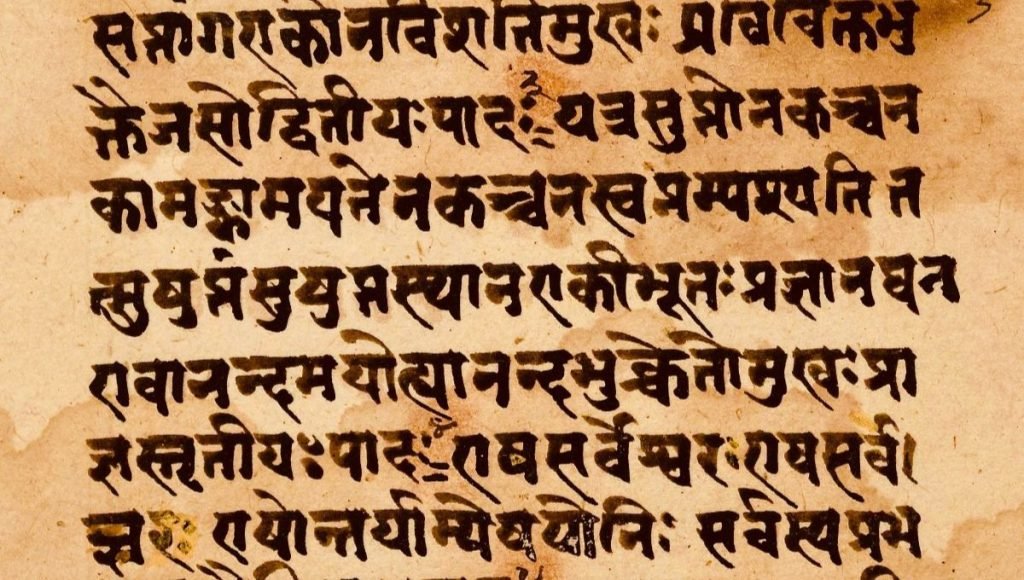 सप्तांगएकोनविंशतिमुखः प्रविविक्तभु
क्तैजसोद्वितीयःपादः २ यत्रसुप्तोनकञ्चन
कामङ्कामयतेनकञ्चनस्वप्नम्पश्यतित
त्सुषुप्तंसुषुप्तस्थानएकीभूतःप्रज्ञानघन
एवानन्दमयोह्यानन्दभुक्चेतोमुखःप्रा
ज्ञस्तृतीयःपादः ३ एषसर्वेश्वरःएषसर्व
ज्ञः एषोन्तर्याम्येषयोनिः सर्वस्यप्रभ